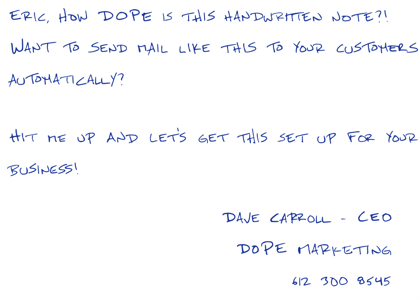 ERIC, HOW DOPE IS THIS HANDWRITTEN NOTE?!
WANT TO SEND MAIL LIKE THIS TO YOUR CUSTOMERS
AUTOMATICALLY?
HIT ME UP AND LET'S GET THIS SET UP FOR YOUR
BUSINESS!
DAVE CARROLL - CEO
DOPE MARKETING
612 300 8545